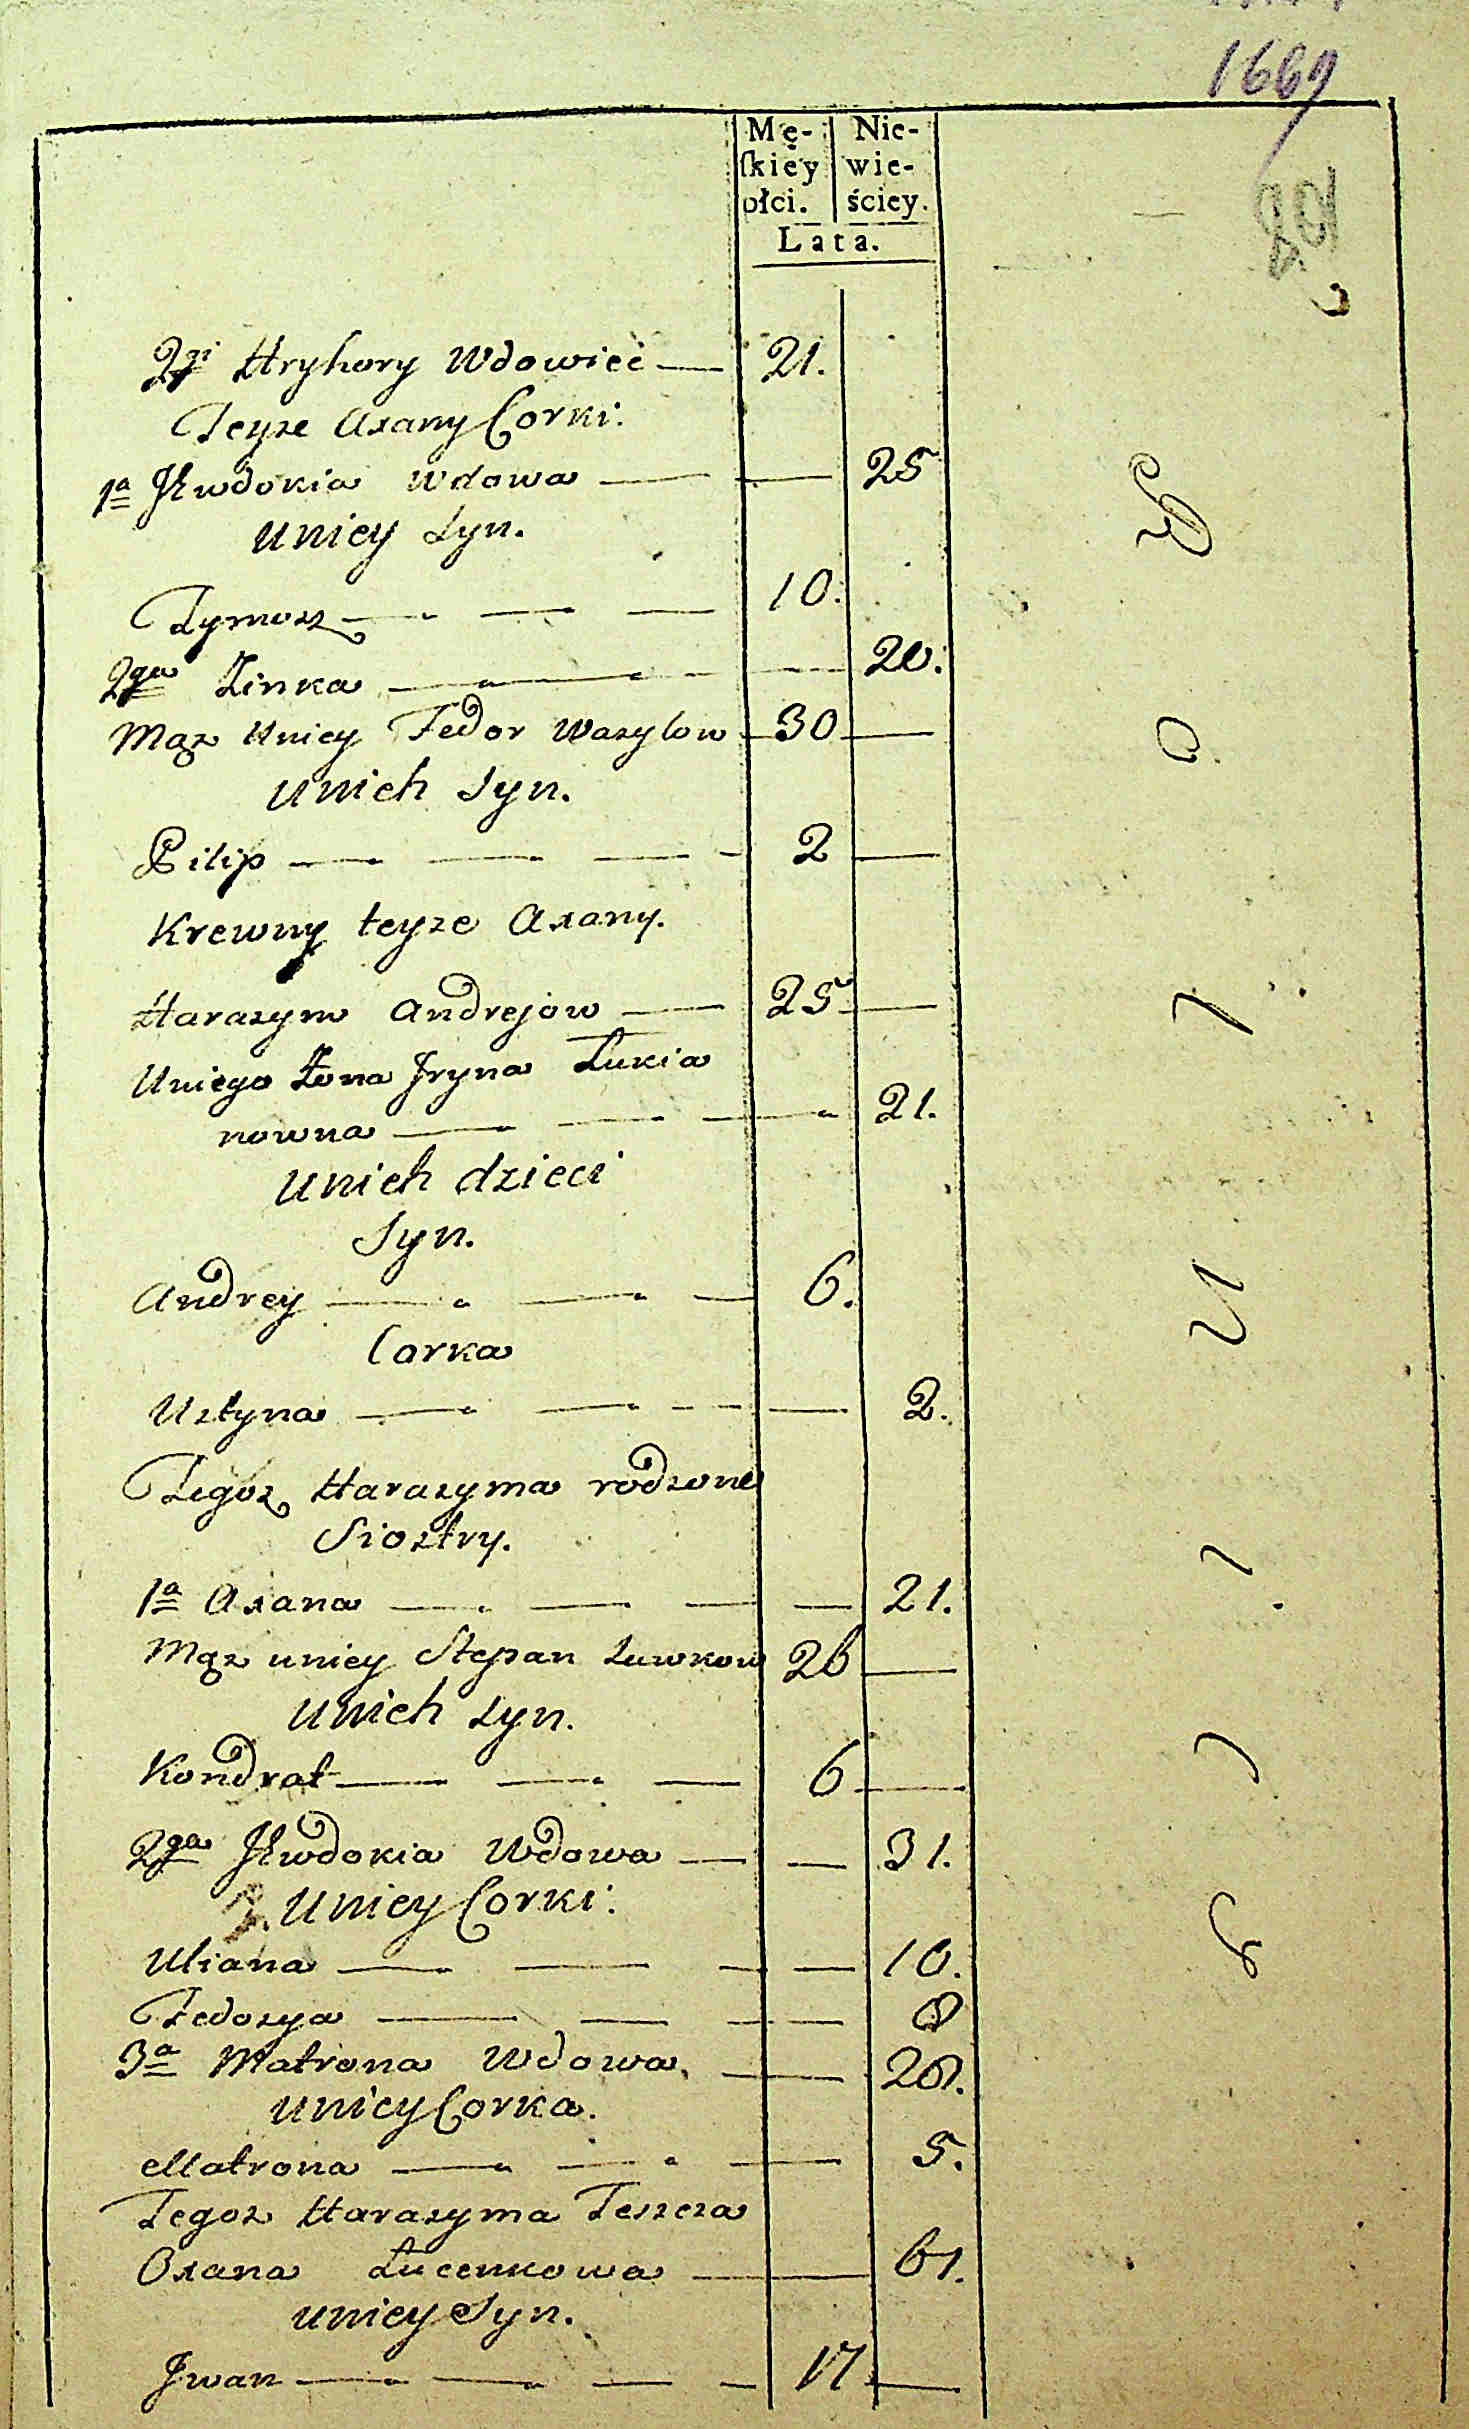 1669
Mę- Nie-
ſkiey wie-
płci. ściey.
Lata.
2gi Hryhory Wdowiec — 21.
Teyże Axany Corki:
1a Jewdokia Wdowa — — 25
Uniey Syn.
Tymosz — — — 10.
2ga Zinka — — — 20.
Mąż Uniey Fedor Wasylow — 30 —
Unich Syn.
Pilip — — — 2 —
Krewny teyże Axany.
Harasym Andrejow — 25 —
Uniego Żona Jryna Łukia
nowna — — — 21.
Unich dzieci
Syn.
Andrey — — — 6.
Corka
Ustyna — — — 2.
Tegoż Harasyma rodzone
Siostry.
1a Axana — — — 21.
Mąż uniey Stepan Sawkow 26 —
Unich Syn.
Kondrat — — — 6 —
2ga Jewdokia Wdowa — — 31.
Uniey Corki:
Uliana — — — 10.
Fedosya — — — 8
3a Matrona Wdowa — 28.
Uniey Corka.
Matrona — — — 5.
Tegoż Harasyma Teszcza
Oxana Łucenkowa — — 61.
Uniey Syn.
Jwan — — — 17 —